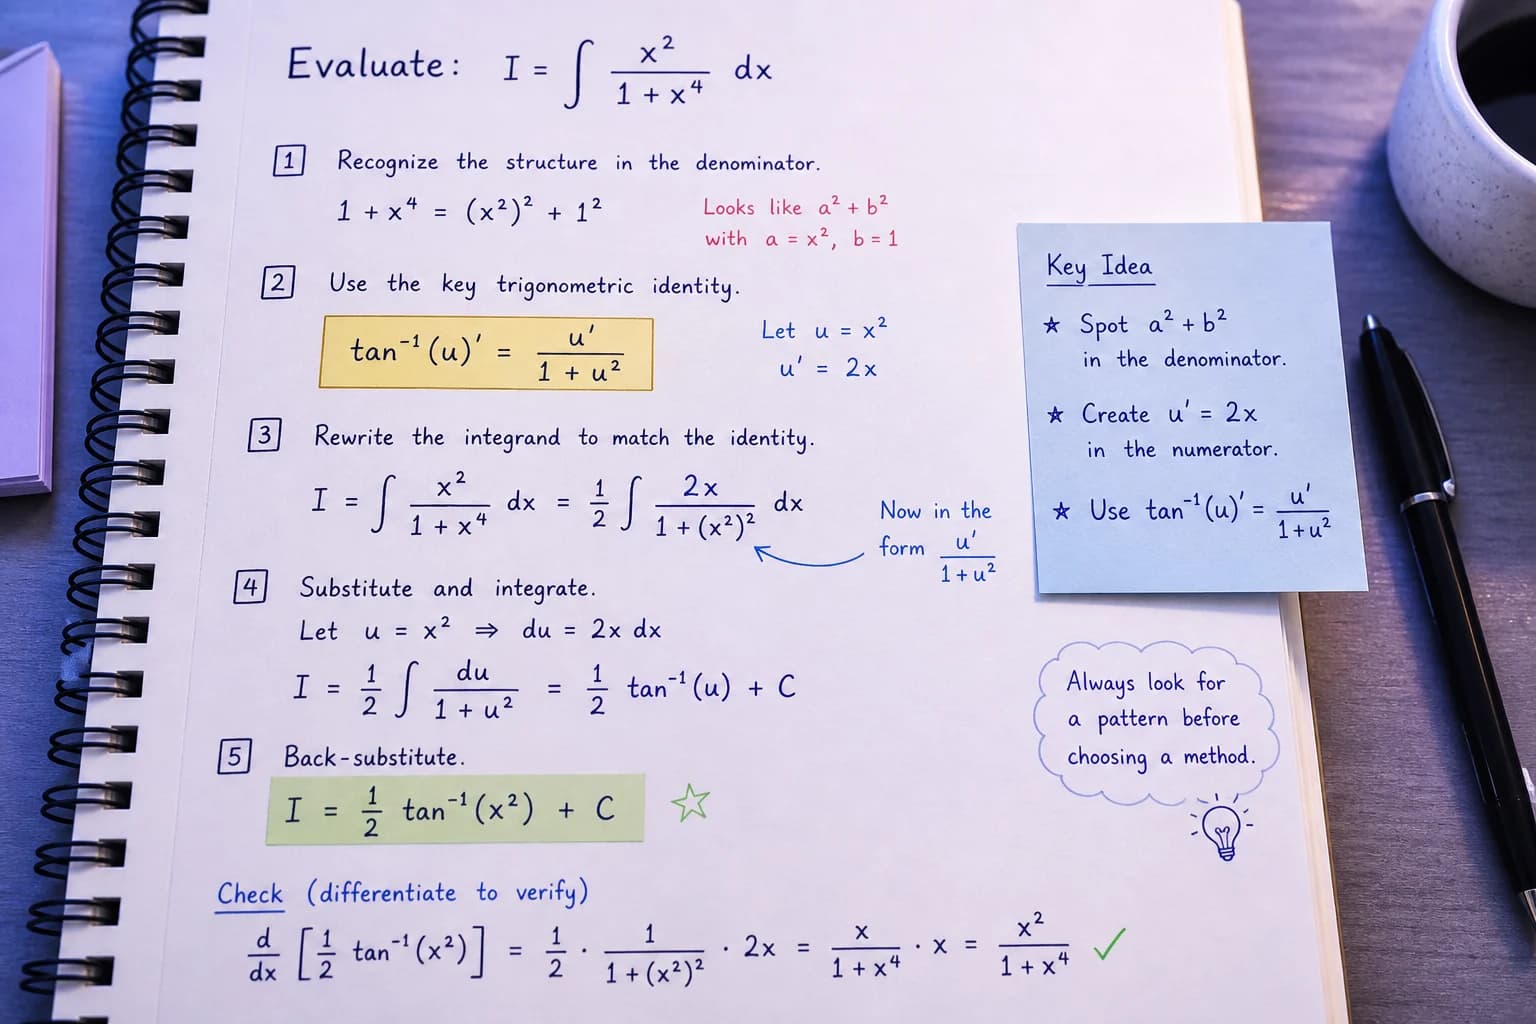 Evaluate: I = ∫ x²/(1 + x⁴) dx
1 Recognize the structure in the denominator.
1 + x⁴ = (x²)² + 1²
Looks like a² + b²
with a = x², b = 1
2 Use the key trigonometric identity.
tan⁻¹(u)′ = u′/(1 + u²)
Let u = x²
u′ = 2x
3 Rewrite the integrand to match the identity.
I = ∫ x²/(1 + x⁴) dx = 1/2 ∫ 2x/(1 + (x²)²) dx
Now in the
form u′/(1 + u²)
4 Substitute and integrate.
Let u = x² ⇒ du = 2x dx
I = 1/2 ∫ du/(1 + u²) = 1/2 tan⁻¹(u) + C
5 Back-substitute.
I = 1/2 tan⁻¹(x²) + C ☆
Check (differentiate to verify)
d/dx [1/2 tan⁻¹(x²)] = 1/2 · 1/(1 + (x²)²) · 2x = x/(1 + x⁴) · x = x²/(1 + x⁴) ✓
Key Idea
★ Spot a² + b²
in the denominator.
★ Create u′ = 2x
in the numerator.
★ Use tan⁻¹(u)′ = u′/(1 + u²)
Always look for
a pattern before
choosing a method.